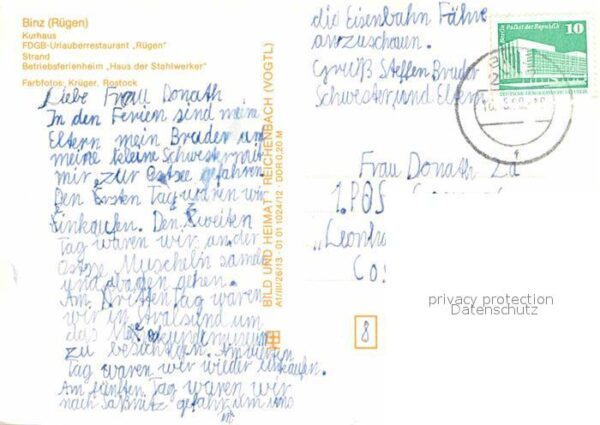 Binz (Rügen)
Kurhaus
FDGB-Urlauberrestaurant „Rügen"
Strand
Betriebsferienheim „Haus der Stahlwerker"
Farbfotos: Krüger, Rostock
Liebe Frau Donath
In den Ferien sind mein
Eltern mein Bruder un
meine kleine Schwester mit
mir zur Ostse gefahren.
Den Ersten Tag waren wir
Einkaufen. Den Zweiten
Tag waren wir an der
Ostse Muscheln
und baden gehen.
Am Dritten Tag waren
wir in Stralsund um
das
zu besichtigen. Am vierten
Tag waren wir wieder einkaufen.
Am fünften Tag waren wir
nach Saßnitz gefahr um uns
die Eisenbahn Fähre
anzuschauen.
Gruß Steffen Bruder
Schwester und Eltern
BILD UND HEIMAT REICHENBACH (VOGTL)
A1/III/26/13 01 01 1024/12 DDR 0,20 M
Berlin Palast der Republik
10
DEUTSCHE DEMOKRATISCHE REPUBLIK
Frau Donath
1. POS
„Leonh
Co
privacy protection
Datenschutz
8